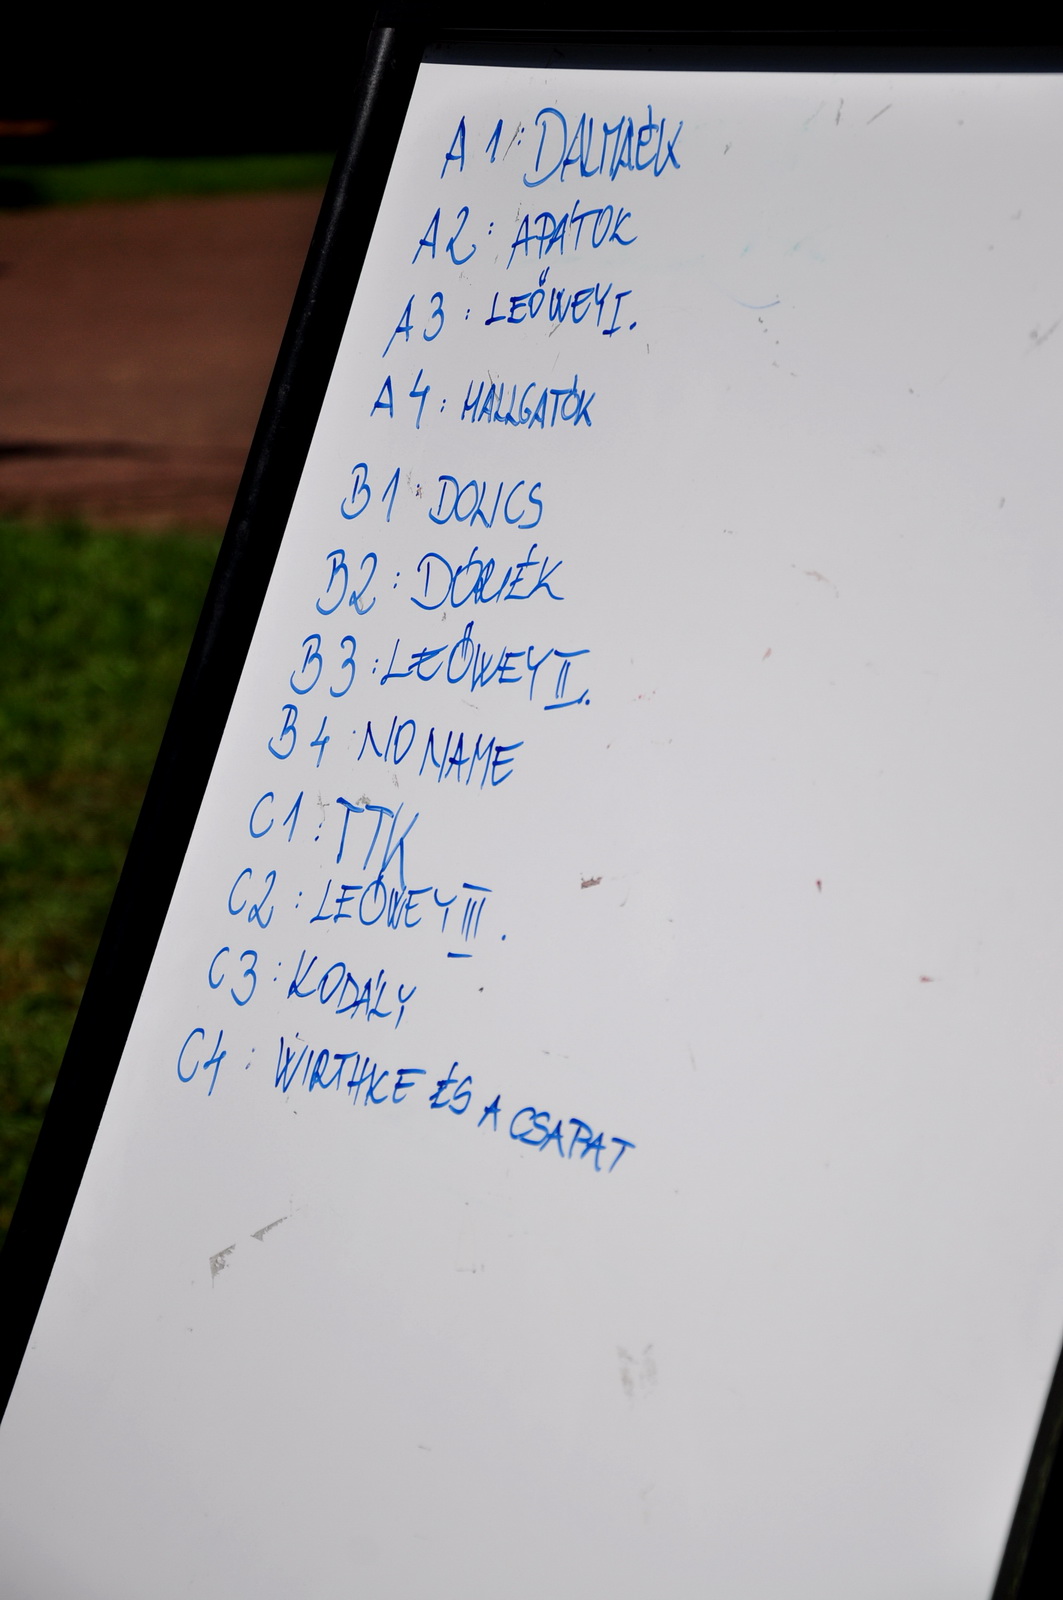 A1: DALMAÉK
A2: APÁTOK
A3: LEŐWEY I.
A4: HALLGATÓK
B1: DOLICS
B2: DÓRIÉK
B3: LEŐWEY II.
B4: NO NAME
C1: TTK
C2: LEŐWEY III.
C3: KODÁLY
C4: WIRTHKE ÉS A CSAPAT